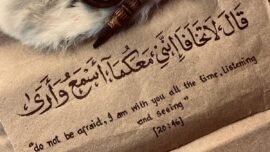 قَالَ لَا تَخَافَا إِنَّنِي مَعَكُمَا أَسْمَعُ وَأَرَى
"do not be afraid, I am with you all the time, listening
and seeing"
[20:46]